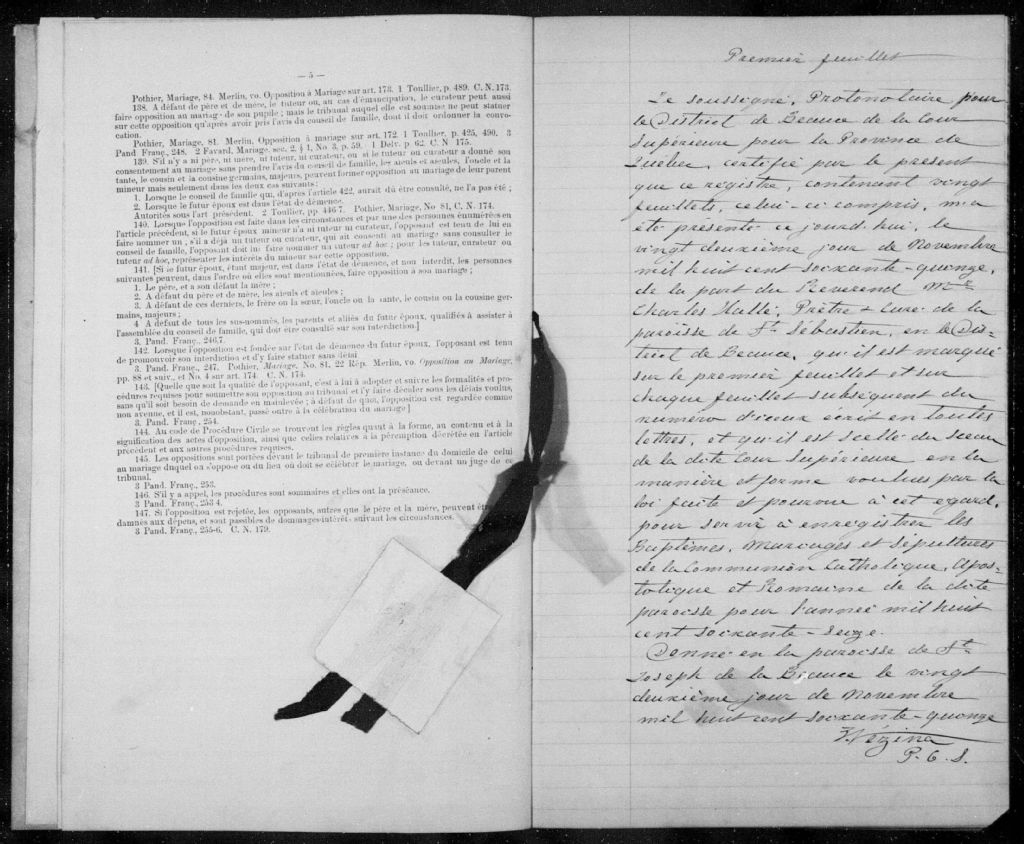 — 5 —
Pothier, Mariage, 84. Merlin, vo. Opposition à Mariage sur art. 173. 1 Toullier, p. 489. C. N. 173.
138. A défaut de père et de mère, le tuteur ou, au cas d'émancipation, le curateur peut aussi
faire opposition au mariage de son pupile ; mais le tribunal auquel elle est soumise ne peut statuer
sur cette opposition qu'après avoir pris l'avis du conseil de famille, dont il doit ordonner la convo-
cation.
Pothier, Mariage, 81. Merlin, Opposition à mariage sur art. 172. 1 Toullier, p. 425, 490. 3
Pand Franç., 248. 2 Favard, Mariage, sec. 2, § 1, No. 3, p. 59. 1 Delv. p. 62. C. N 175.
139. S'il n'y a ni père, ni mère, ni tuteur, ni curateur, ou si le tuteur ou curateur a donné son
consentement au mariage sans prendre l'avis du conseil de famille, les aïeuls et aïeules, l'oncle et la
tante, le cousin et la cousine germains, majeurs, peuvent former opposition au mariage de leur parent
mineur mais seulement dans les deux cas suivants :
1. Lorsque le conseil de famille qui, d'après l'article 422, aurait dû être consulté, ne l'a pas été ;
2. Lorsque le futur époux est dans l'état de démence.
Autorités sous l'art précédent. 2 Toullier, pp 446 7. Pothier, Mariage, No 81, C. N. 174.
140. Lorsque l'opposition est faite dans les circonstances et par une des personnes énumérées en
l'article précédent, si le futur époux mineur n'a ni tuteur ni curateur, l'opposant est tenu de lui en
faire nommer un ; s'il a déjà un tuteur ou curateur, qui ait consenti au mariage sans consulter le
conseil de famille, l'opposant doit lui faire nommer un tuteur ad hoc ; pour les tuteur, curateur ou
tuteur ad hoc, représenter les intérêts du mineur sur cette opposition.
141. [Si le futur époux, étant majeur, est dans l'état de démence, et non interdit, les personnes
suivantes peuvent, dans l'ordre où elles sont mentionnées, faire opposition à son mariage ;
1. Le père, et a son défaut la mère ;
2. A défaut du père et de mère, les aïeuls et aïeules ;
3. A défaut de ces derniers, le frère ou la sœur, l'oncle ou la tante, le cousin ou la cousine ger-
mains, majeurs ;
4 A défaut de tous les sus-nommés, les parents et alliés du futur époux, qualifiés à assister à
l'assemblée du conseil de famille, qui doit être consulté sur son interdiction.]
3. Pand. Franç., 246.7.
142. Lorsque l'opposition est fondée sur l'état de démence du futur époux, l'opposant est tenu
de promouvoir son interdiction et d'y faire statuer sans délai
3. Pand. Franç., 247. Pothier, Mariage, No. 81, 22 Rép. Merlin, vo. Opposition au Mariage,
pp. 88 et suiv., et No. 4 sur art. 174. C. N. 174.
143. [Quelle que soit la qualité de l'opposant, c'est à lui à adopter et suivre les formalités et pro-
cédures requises pour soumettre son opposition au tribunal et l'y faire décider sous les délais voulus,
sans qu'il soit besoin de demande en mainlevée ; à défaut de quoi, l'opposition est regardée comme
non avenue, et il est, nonobstant, passé outre à la célébration du mariage]
3. Pand. Franç., 254.
144. Au code de Procédure Civile se trouvent les règles quant à la forme, au contenu et à la
signification des actes d'opposition, ainsi que celles relatives à la péremption décrétée en l'article
précédent et aux autres procédures requises.
145. Les oppositions sont portées devant le tribunal de première instance du domicile de celui
au mariage duquel on s'oppose ou du lieu où doit se célébrer le mariage, ou devant un juge de ce
tribunal.
3 Pand. Franç., 253.
146. S'il y a appel, les procédures sont sommaires et elles ont la préséance.
3 Pand. Franç., 253 4.
147. Si l'opposition est rejetée, les opposants, autres que le père et la mère, peuvent êtr
damnés aux dépens, et sont passibles de dommages-intérêt- suivant les circonstances.
3 Pand. Franç., 255-6. C. N. 179.
Premier feuillet
Je soussigné, Protonotaire pour
le District de Beauce de la Cour
Supérieure pour la Province de
Québec, certifie par le présent
que ce régistre, contenant vingt
feuillets, celui-ci compris, m'a
été présenté ce jourd'hui, le
vingt deuxième jour de Novembre
mil huit cent soixante-quinze,
de la part du Révérend Mre
Charles Hallé, Prêtre & Curé de la
paroisse de St. Sébastien, en le Dis-
trict de Beauce, qu'il est marqué
sur le premier feuillet et sur
chaque feuillet subséquent du
numéro d'iceux écrit en toutes
lettres, et qu'il est scellé du sceau
de la dite Cour Supérieure en la
manière et forme voulues par la
loi faite et pourvue à cet égard,
pour servir à enregistrer les
Baptêmes, Mariages et Sépultures
de la Communion Catholique, Apos-
tolique et Romaine de la dite
paroisse pour l'année mil huit
cent soixante-seize.
Donné en la paroisse de St.
Joseph de la Beauce le vingt
deuxième jour de Novembre
mil huit cent soixante-quinze
Vézina
P. C. S.